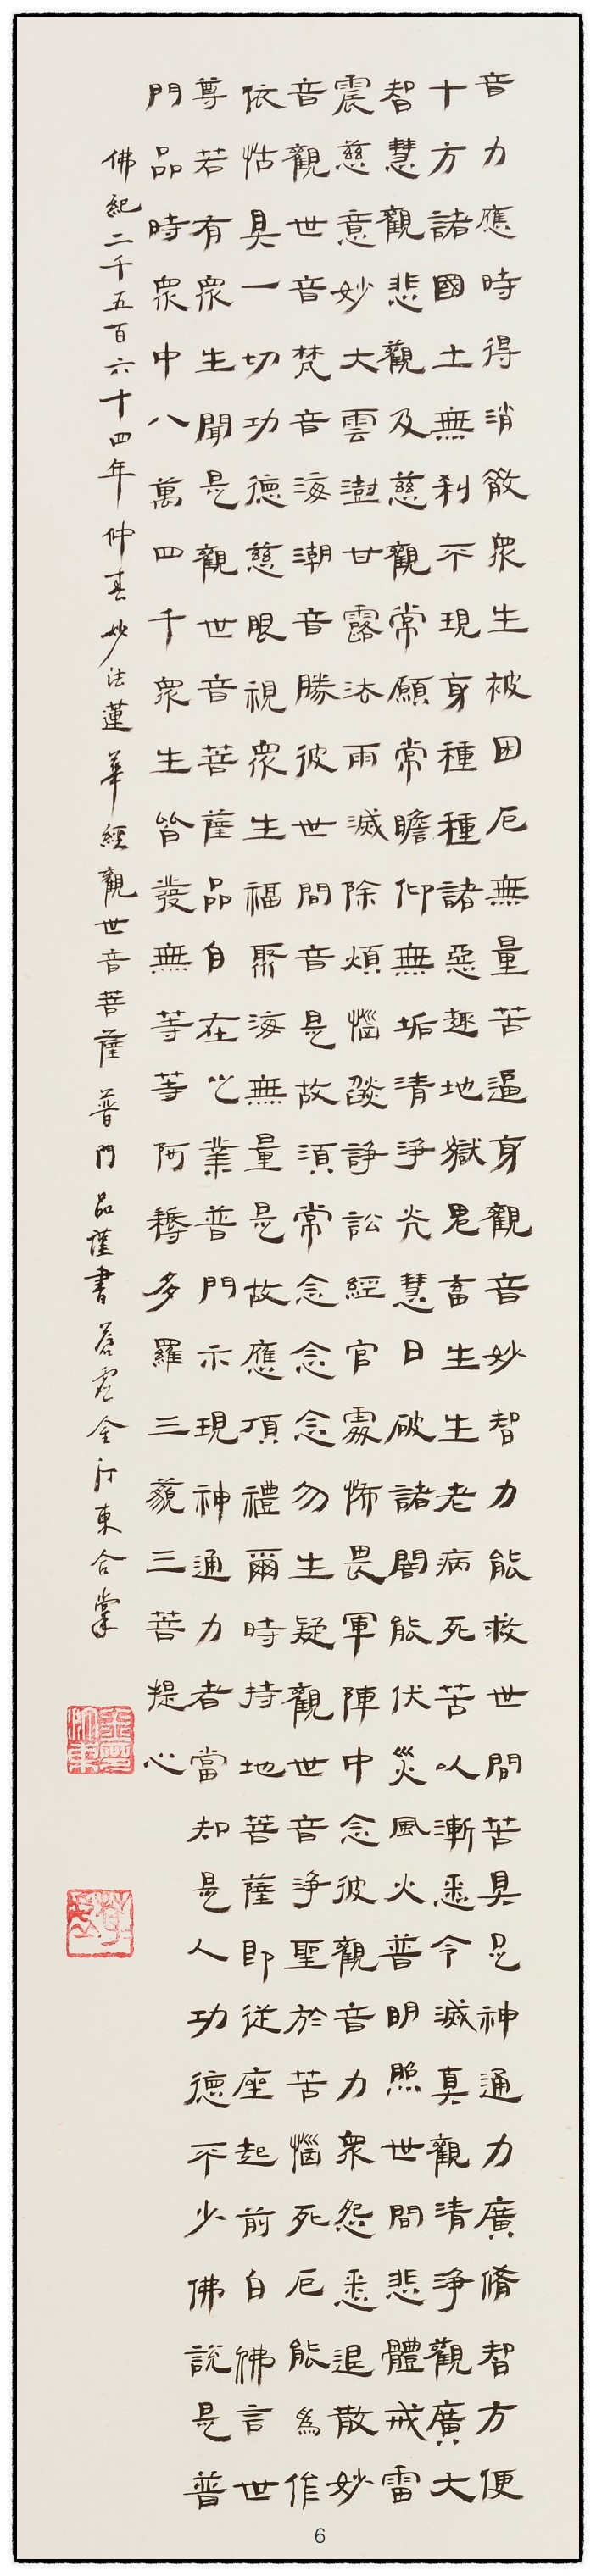 音力應時得消散衆生被困厄無量苦逼身觀音妙智力能救世間苦具足神通力廣脩智方便
十方諸國土無刹不現身種種諸惡趣地獄鬼畜生生老病死苦以漸悉令滅真觀清淨觀廣大
智慧觀悲觀及慈觀常願常瞻仰無垢清淨光慧日破諸闇能伏災風火普明照世間悲體戒雷
震慈意妙大雲澍甘露法雨滅除煩惱燄諍訟經官處怖畏軍陣中念彼觀音力衆怨悉退散妙
音觀世音梵音海潮音勝彼世間音是故須常念念念勿生疑觀世音淨聖於苦惱死厄能爲作
依怙具一切功德慈眼視衆生福聚海無量是故應頂禮爾時持地菩薩即從座起前白佛言世
尊若有衆生聞是觀世音菩薩品自在之業普門示現神通力者當知是人功德不少佛說是普
門品時衆中八萬四千衆生皆發無等等阿耨多羅三藐三菩提心
佛紀二千五百六十四年仲春妙法蓮華經觀世音菩薩普門品謹書 金汀東合掌
6